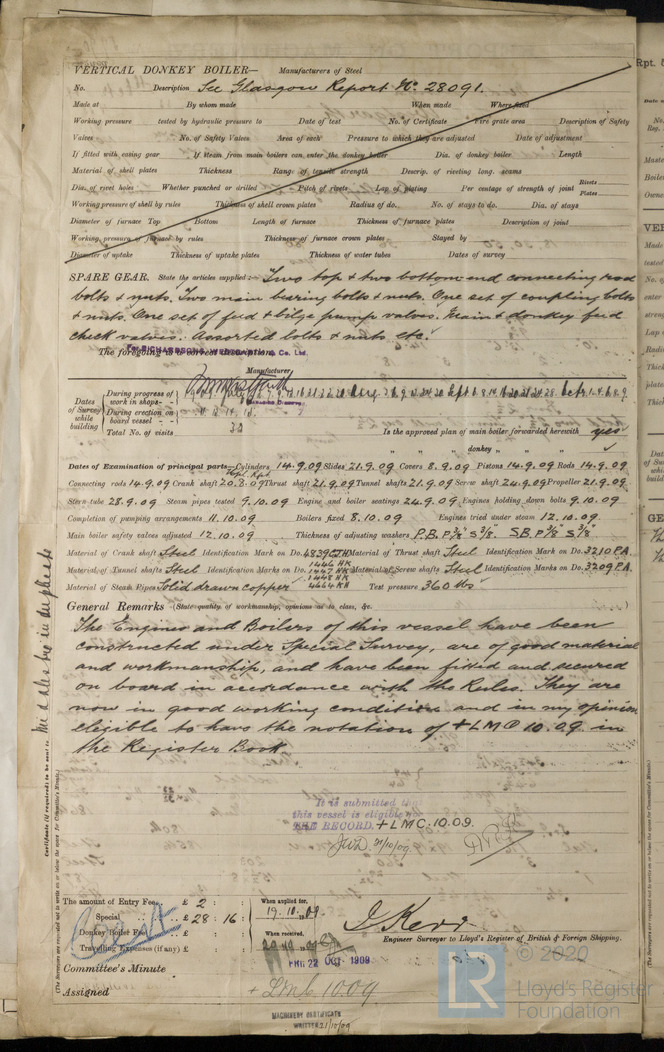 VERTICAL DONKEY BOILER— Manufacturers of Steel
No. Description See Glasgow Report No. 28091.
Made at By whom made When made Where fixed
Working pressure tested by hydraulic pressure to Date of test No. of Certificate Fire grate area Description of Safety
Valves No. of Safety Valves Area of each Pressure to which they are adjusted Date of adjustment
If fitted with easing gear If steam from main boilers can enter the donkey boiler Dia. of donkey boiler Length
Material of shell plates Thickness Range of tensile strength Descrip. of riveting long. seams
Dia. of rivet holes Whether punched or drilled Pitch of rivets Lap of plating Per centage of strength of joint Rivets Plates
Working pressure of shell by rules Thickness of shell crown plates Radius of do. No. of stays to do. Dia. of stays
Diameter of furnace Top Bottom Length of furnace Thickness of furnace plates Description of joint
Working pressure of furnace by rules Thickness of furnace crown plates Stayed by
Diameter of uptake Thickness of uptake plates Thickness of water tubes Dates of survey
SPARE GEAR. State the articles supplied:— Two top & two bottom end connecting rod
bolts & nuts. Two main bearing bolts & nuts. One set of coupling bolts
& nuts. One set of feed & bilge pump valves. Main & donkey feed
check valves. Assorted bolts & nuts etc.
The foregoing is a correct description,
Manufacturer
Dates of Survey while building
During progress of work in shops - -
During erection on board vessel - - -
Total No. of visits 30
Is the approved plan of main boiler forwarded herewith yes
" " " donkey " " "
Dates of Examination of principal parts—Cylinders 14.9.09 Slides 21.9.09 Covers 8.9.09 Pistons 14.9.09 Rods 14.9.09
Connecting rods 14.9.09 Crank shaft 20.8.09 Thrust shaft 21.9.09 Tunnel shafts 21.9.09 Screw shaft 24.9.09 Propeller 21.9.09
Stern tube 28.9.09 Steam pipes tested 9.10.09 Engine and boiler seatings 24.9.09 Engines holding down bolts 9.10.09
Completion of pumping arrangements 11.10.09 Boilers fixed 8.10.09 Engines tried under steam 12.10.09
Main boiler safety valves adjusted 12.10.09 Thickness of adjusting washers P.B. P 3/8" S 3/8". S.B. P 3/8 S 3/8"
Material of Crank shaft Steel Identification Mark on Do. 4839GTH Material of Thrust shaft Steel Identification Mark on Do. 3210 P.A.
Material of Tunnel shafts Steel Identification Marks on Do. 1446 HK 1447 HK 1448 HK Material of Screw shafts Steel Identification Marks on Do. 3209 P.A.
Material of Steam Pipes Solid drawn copper Test pressure 360 lbs
General Remarks (State quality of workmanship, opinions as to class, &c.
The Engines and Boilers of this vessel have been
constructed under Special Survey, are of good material
and workmanship, and have been fitted and secured
on board in accordance with the Rules. They are
now in good working condition and in my opinion
eligible to have the notation of +LMC 10.09. in
the Register Book
It is submitted that
this vessel is eligible for
THE RECORD. +LMC. 10.09.
JWD 21/10/09
The amount of Entry Fee.. £ 2 : :
Special .. £ 28 : 16 :
Donkey Boiler Fee .. £ : :
Travelling Expenses (if any) £ : :
When applied for,
19.10.09.
When received,
J Kerr
Engineer Surveyor to Lloyd's Register of British & Foreign Shipping.
FRI. 22 OCT 1909
Committee's Minute
Assigned + LMC 10.09
MACHINERY CERTIFICATE
WRITTEN 21/10/09
Certificate (if required) to be sent to
(The Surveyors are requested not to write on or below the space for Committee's Minute.)
© 2020
LR
Lloyd's Register
Foundation